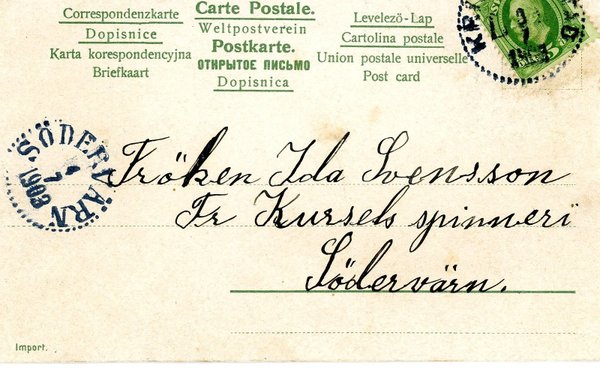 Correspondenzkarte
Dopisnice
Karta korespondencyjna
Briefkaart
Carte Postale.
Weltpostverein
Postkarte.
ОТКРЫТОЕ ПИСЬМО
Dopisnica
Levelező-Lap
Cartolina postale
Union postale universelle
Post card
SÖDERVÄRN
4
7
1903
Fröken Ida Svensson
Fr Kursels spinneri
Södervärn.
Import.